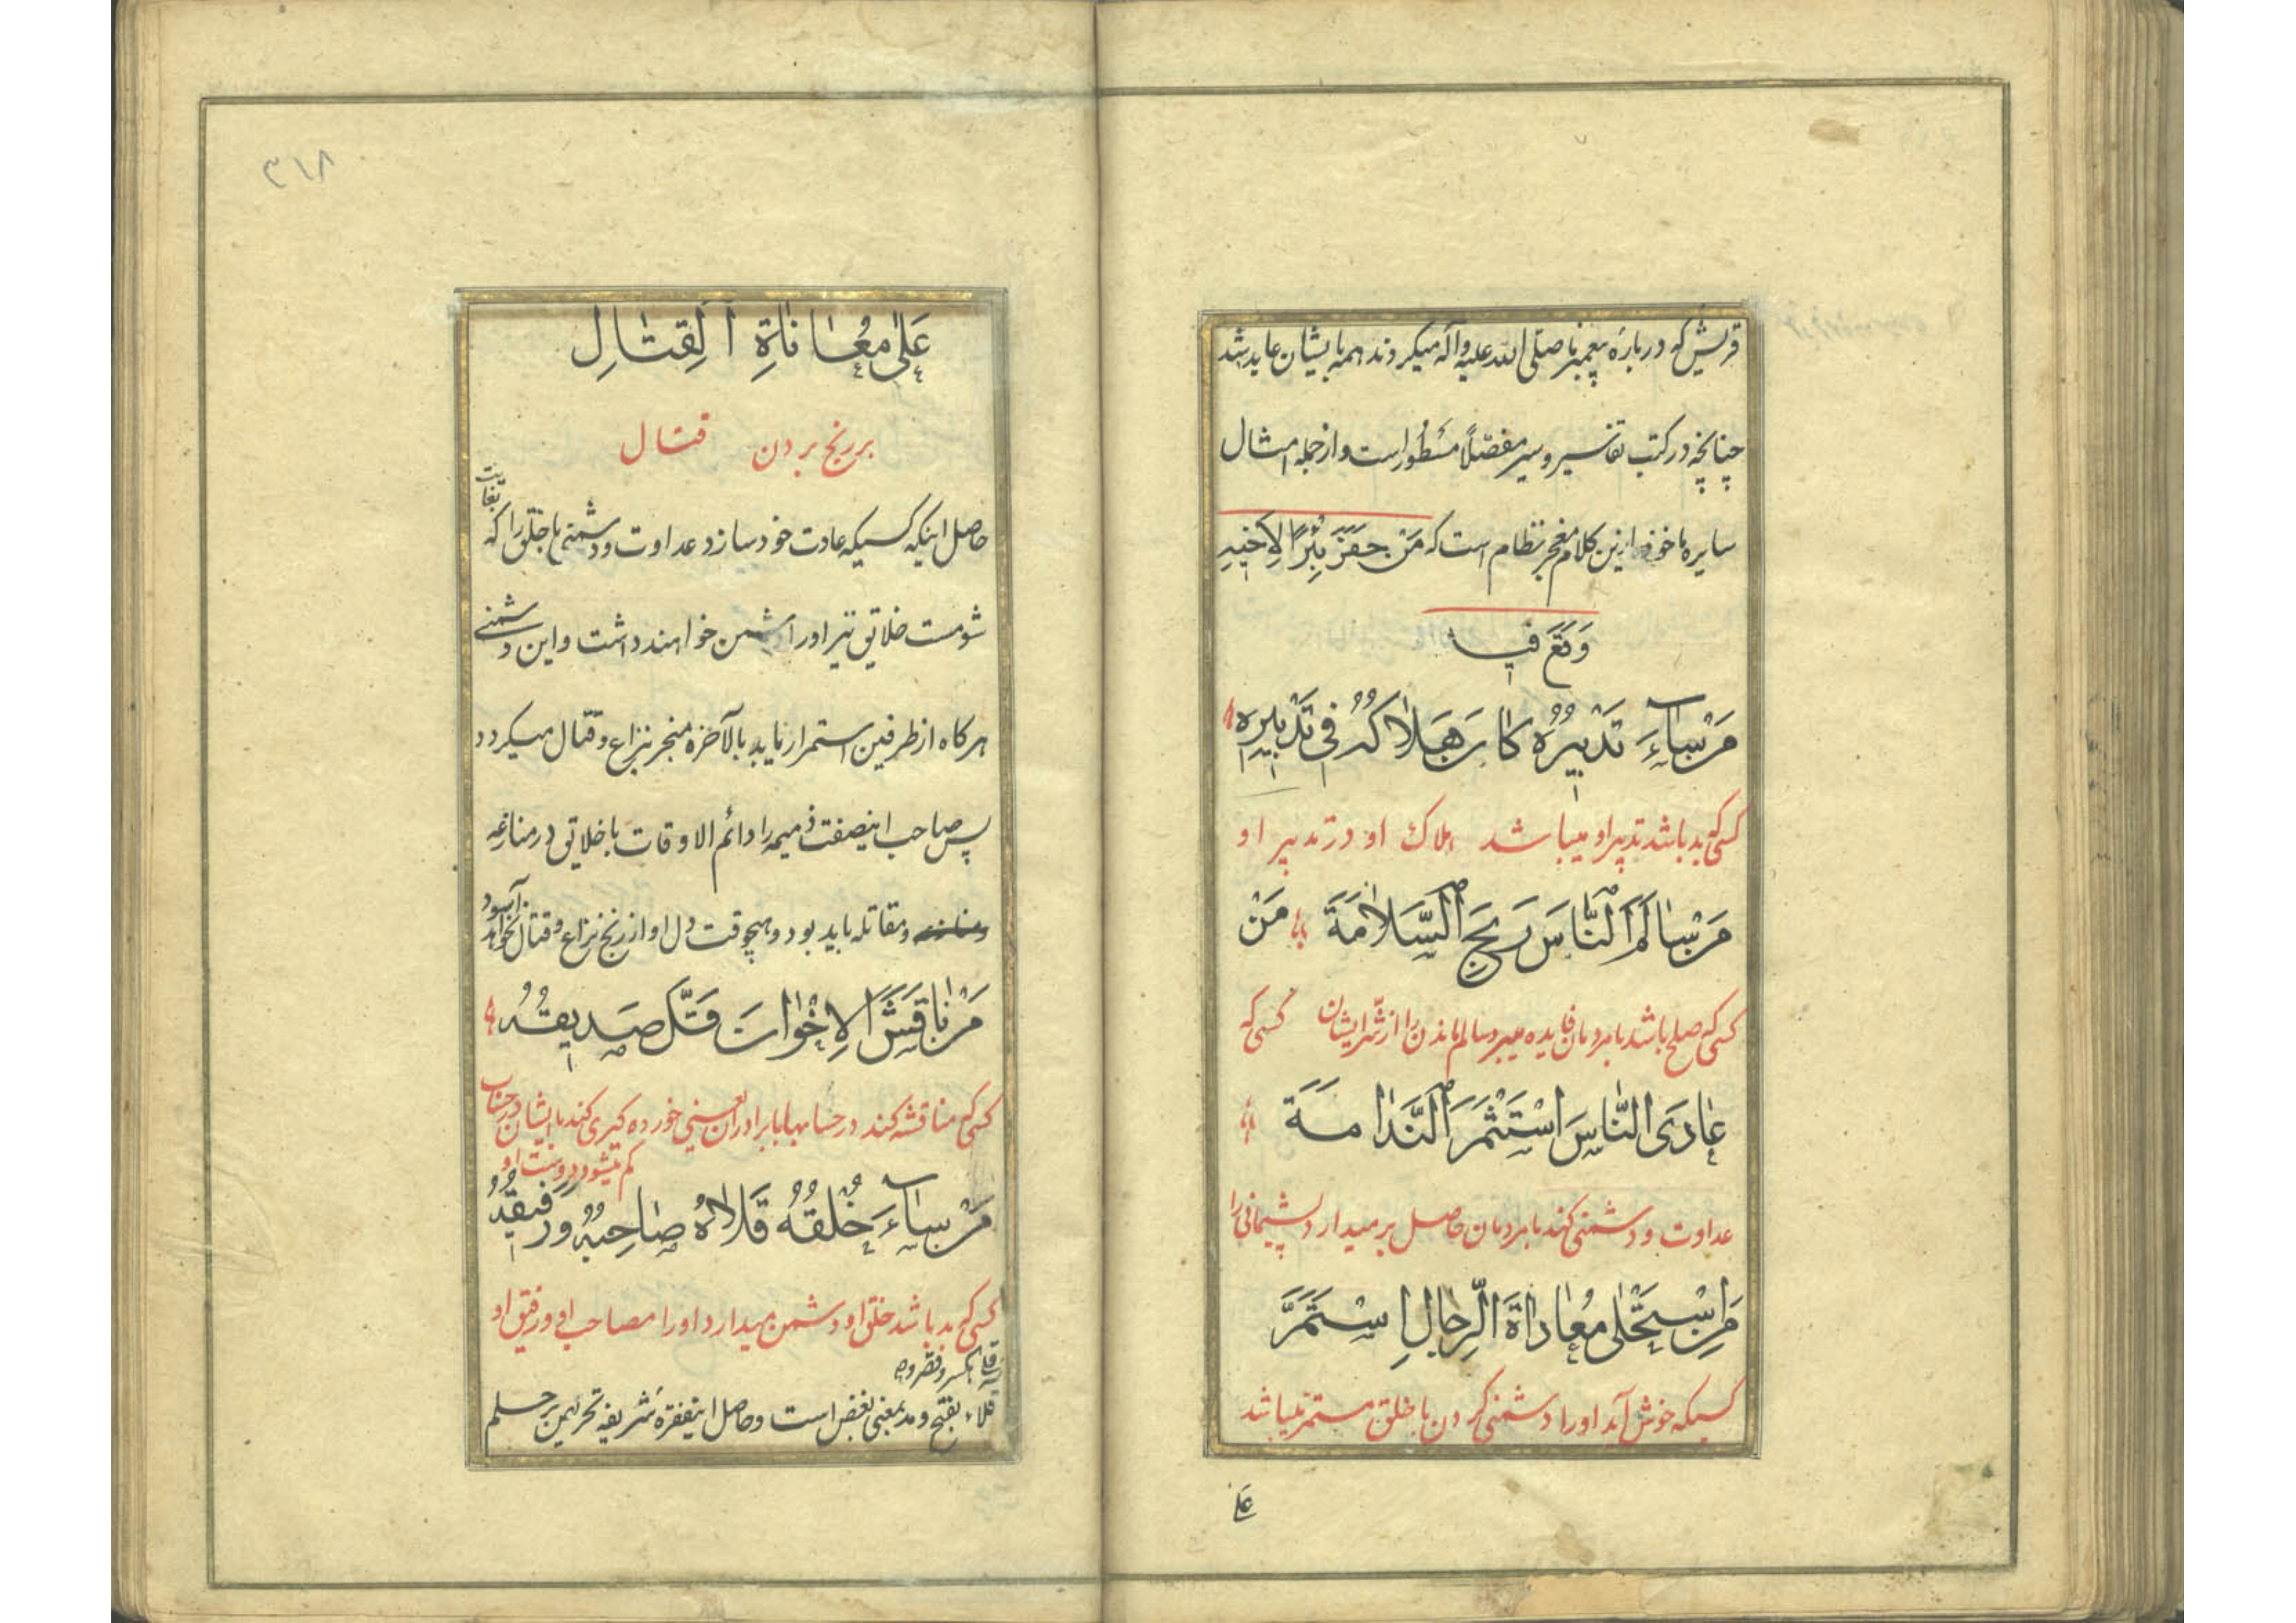 قریش که درباره پیغمبر ما صلی الله علیه و آله میکردند همه بایشان عاید شد
چنانچه در کتب تفاسیر و سیر مفصّلاً مسطور است و از جمله امثال
سایره ماخوذه ازین کلام معجز نظام است که مَنْ حَفَرَ بِئْرًا لِاَخِیهِ
وَقَعَ فیها
مَنْ سٰاءَ تَدْبیرُهُ کٰانَ هَلاٰکُهُ فی تَدْبیرِهِ
کسی که بد باشد تدبیر او میباشد هلاک او در تدبیر او
مَنْ سٰالَمَ النّٰاسَ رَبِحَ السَّلاٰمَةَ مَنْ
کسی که صلح باشد با مردمان فایده میبرد سالم ماندن را از شر ایشان کسی که
عٰادَی النّٰاسَ اسْتَثْمَرَ النَّدٰامَةَ
عداوت و دشمنی کند با مردمان حاصل برمیدارد پشیمانی را
مَنِ اسْتَحْلٰی مُعٰادٰاةَ الرِّجٰالِ اِسْتَمَرَّ
کسیکه خوش آید او را دشمنی کردن با خلق مستمر میباشد
علی
۳۱۸
عَلٰی مُعٰانٰاةِ الْقِتٰالِ
بر رنج بردن قتال
حاصل اینکه کسیکه عادت خود سازد عداوت و دشمنی با خلق را که بغایت
شومست خلایق نیز او را دشمن خواهند داشت و این دشمنی
هرکاه از طرفین استمرار نماید بالآخره منجر بنزاع و قتال میکردد
پس صاحب اینصفت ذمیمه را دائم الاوقات با خلایق در منازعه
و مقاتله باید بود و هیچوقت دل او از رنج نزاع و قتال نخواهد آسود
مَنْ نٰاقَشَ الْاِخْوٰانَ قَلَّ صَدیقُهُ
کسی که مناقشه کند در حسابها با برادران یعنی خورده کیری کند با ایشان در حساب
کم میشود دوست او
مَنْ سٰاءَ خُلْقُهُ قَلاٰهُ صٰاحِبُهُ وَ رَفیقُهُ
کسی که بد باشد خلق او دشمن میدارد او را مصاحب او و رفیق او
قلاء بفتح و مد بمعنی بغض است و حاصل اینفقره شریفه تحریص بر حلم